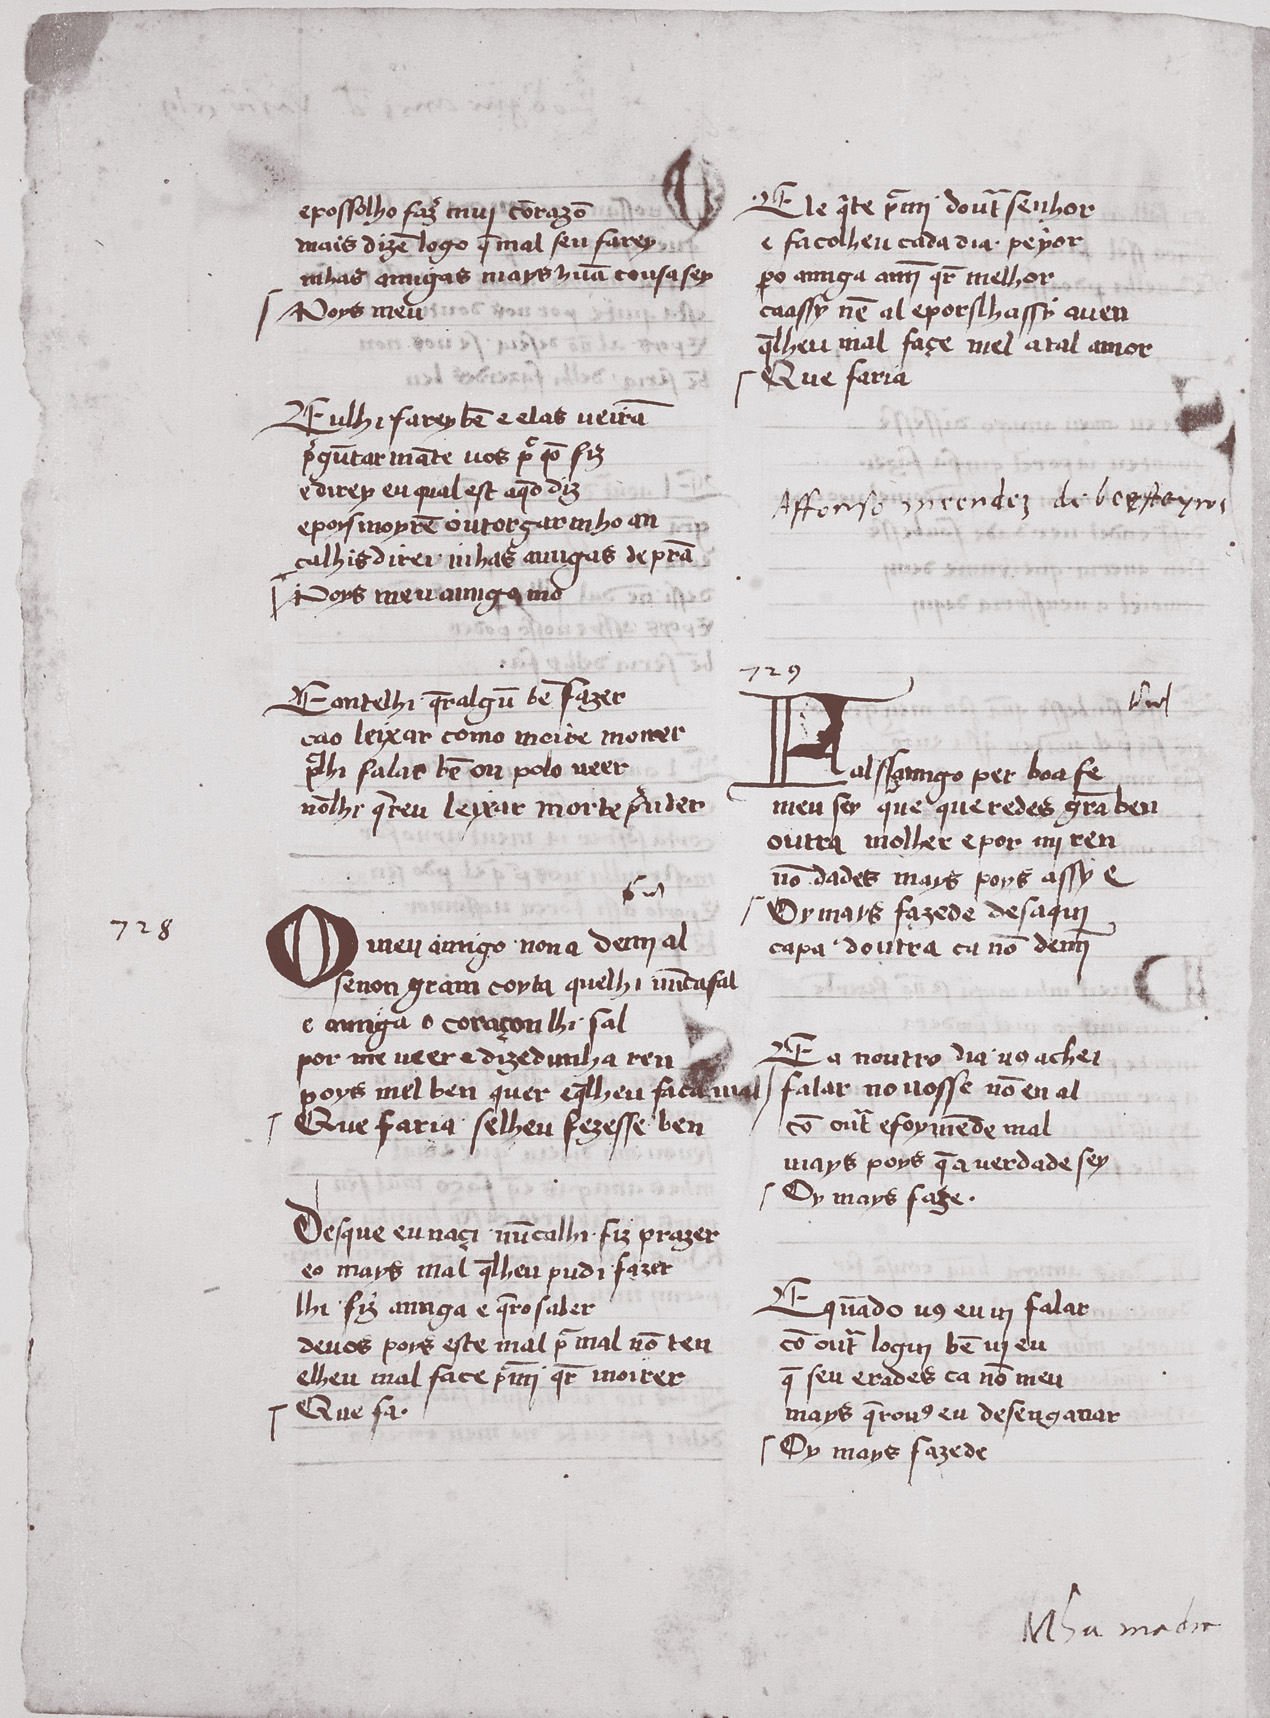 epossolho faz̃ muj cõrazõ
mais dizẽ logo q̃ mal seu farey
mhas amigas mays hũa cousa sey
Poys meu
Eulhi farey bẽ e elas ueirã
p̃gũtar mãte uos p̃ q̃o fiz
e direy eu qual est aq̃o diz
epoys moyrẽ outorgarmho an
calhis direi mhas amigas de prã
Poys meu amigo mo
E ontelhi q̃r algũ bẽ fazer
cao leixar como moire morrer
p̃lhi falar bẽ ou polo ueer
nõlhi q̃r eu leixar morte p̃nder
728
O meu amigo non a demj al
senon gram coyta quelhi nũca fal
e amiga o coraçon lhi sal
por me ueer e dizedmha ren
poys mel ben quer e q̃lheu faça mal
Que faria selheu fezesse ben
Desque eu naçi nũcalhi fiz prazer
eo mays mal q̃lheu pudi fazer
lhi fiz amiga e q̃ro saber
deuos poys este mal p̃ mal nõ ten
elheu mal face p̃mj q̃r moirer
Que fa.
Ele q̃ite p̃mj dout̃ senhor
e facolheu cada dia peyor
p̃o amiga amĩ q̃r melhor
caassy nẽ al eporslhassy auen
q̃lheu mal façe mel a tal amor
Que faria
Affonso meendez de beesteyros
729
Falssamigo per boa fe
meu sey que queredes grã ben
outra molher e por mj ren
nõ dades mays poys assy e
Oy mays fazede desaquj
capa doutra ca nõ demĩ
Ea noutro dia uꝯ achei
falar no uosse nõ en al
cõ out̃ e foy mẽde mal
mays poys q̃ a uerdade sey
Oy mays faze.
E quãdo uꝯ eu uj falar
cõ out̃ loguj bẽ uj eu
q̃ seu erades ca nõ meu
mays q̃rouꝯ eu desenganar
Oy mays fazede
Mha madre